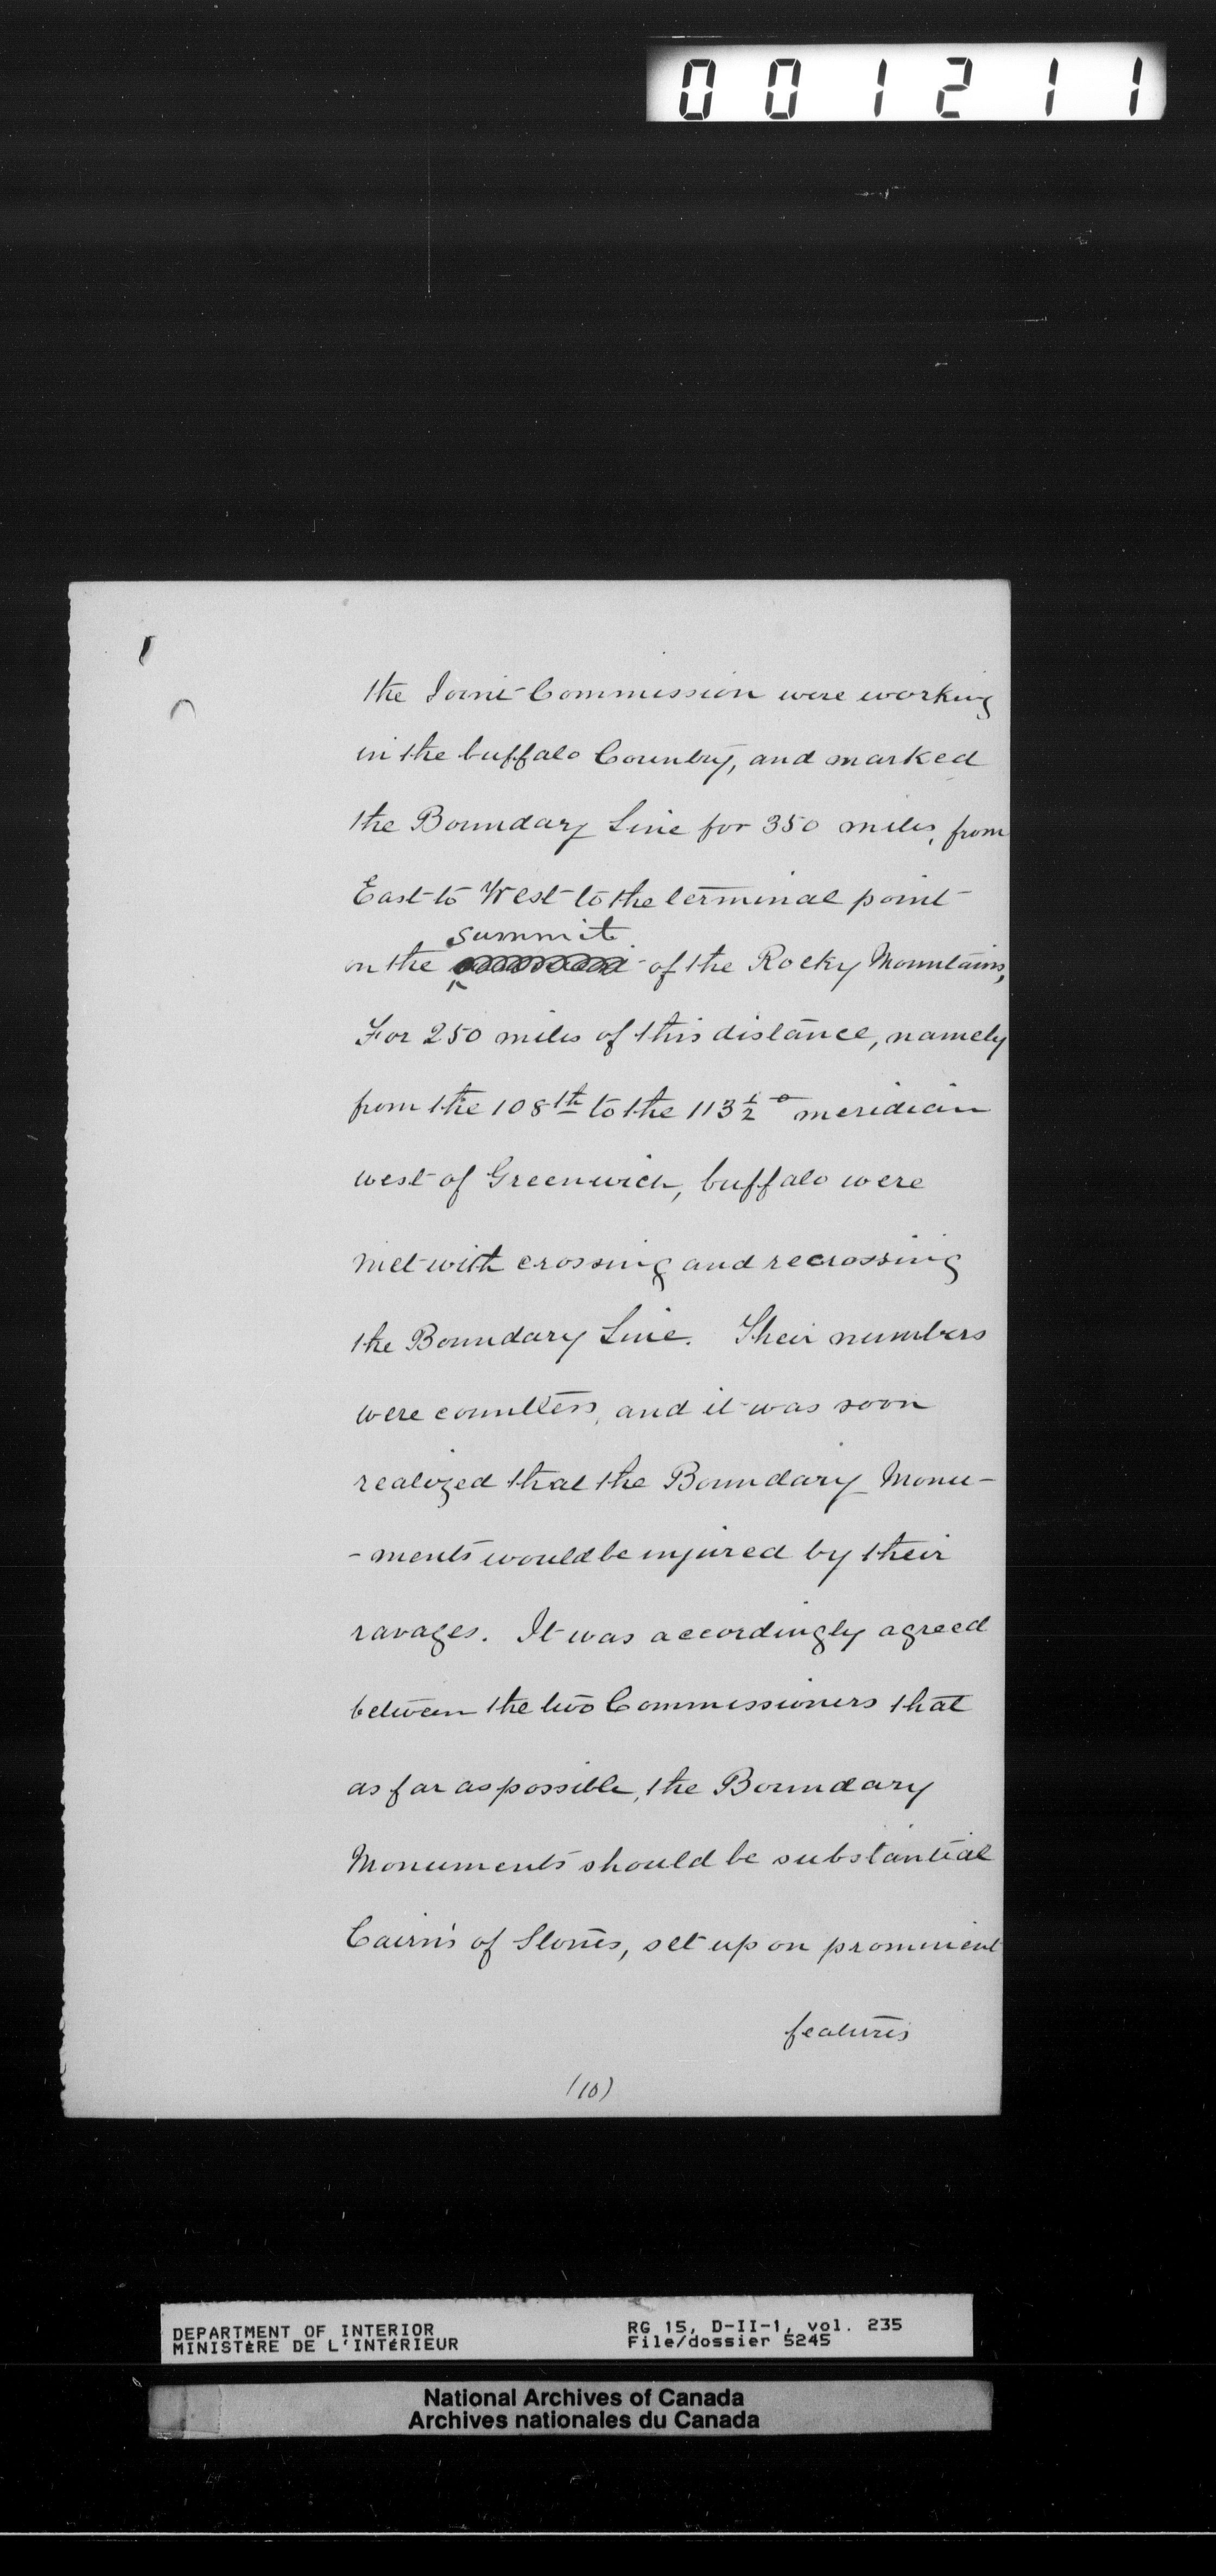 001211
the Joint Commission were working
in the buffalo Country, and marked
the Boundary Line for 350 miles, from
East to West to the terminal point
summit
on the of the Rocky Mountains,
For 250 miles of this distance, namely
from the 108th to the 113½° meridian
west of Greenwich, buffalo were
met with crossing and recrossing
the Boundary Line. Their numbers
were countless, and it was soon
realized that the Boundary Monu-
-ments would be injured by their
ravages. It was accordingly agreed
between the two Commissioners that
as far as possible, the Boundary
Monuments should be substantial
Cairns of Stones, set up on prominent
features
(10)
DEPARTMENT OF INTERIOR RG 15, D-II-1, vol. 235
MINISTÈRE DE L'INTÉRIEUR File/dossier 5245
National Archives of Canada
Archives nationales du Canada